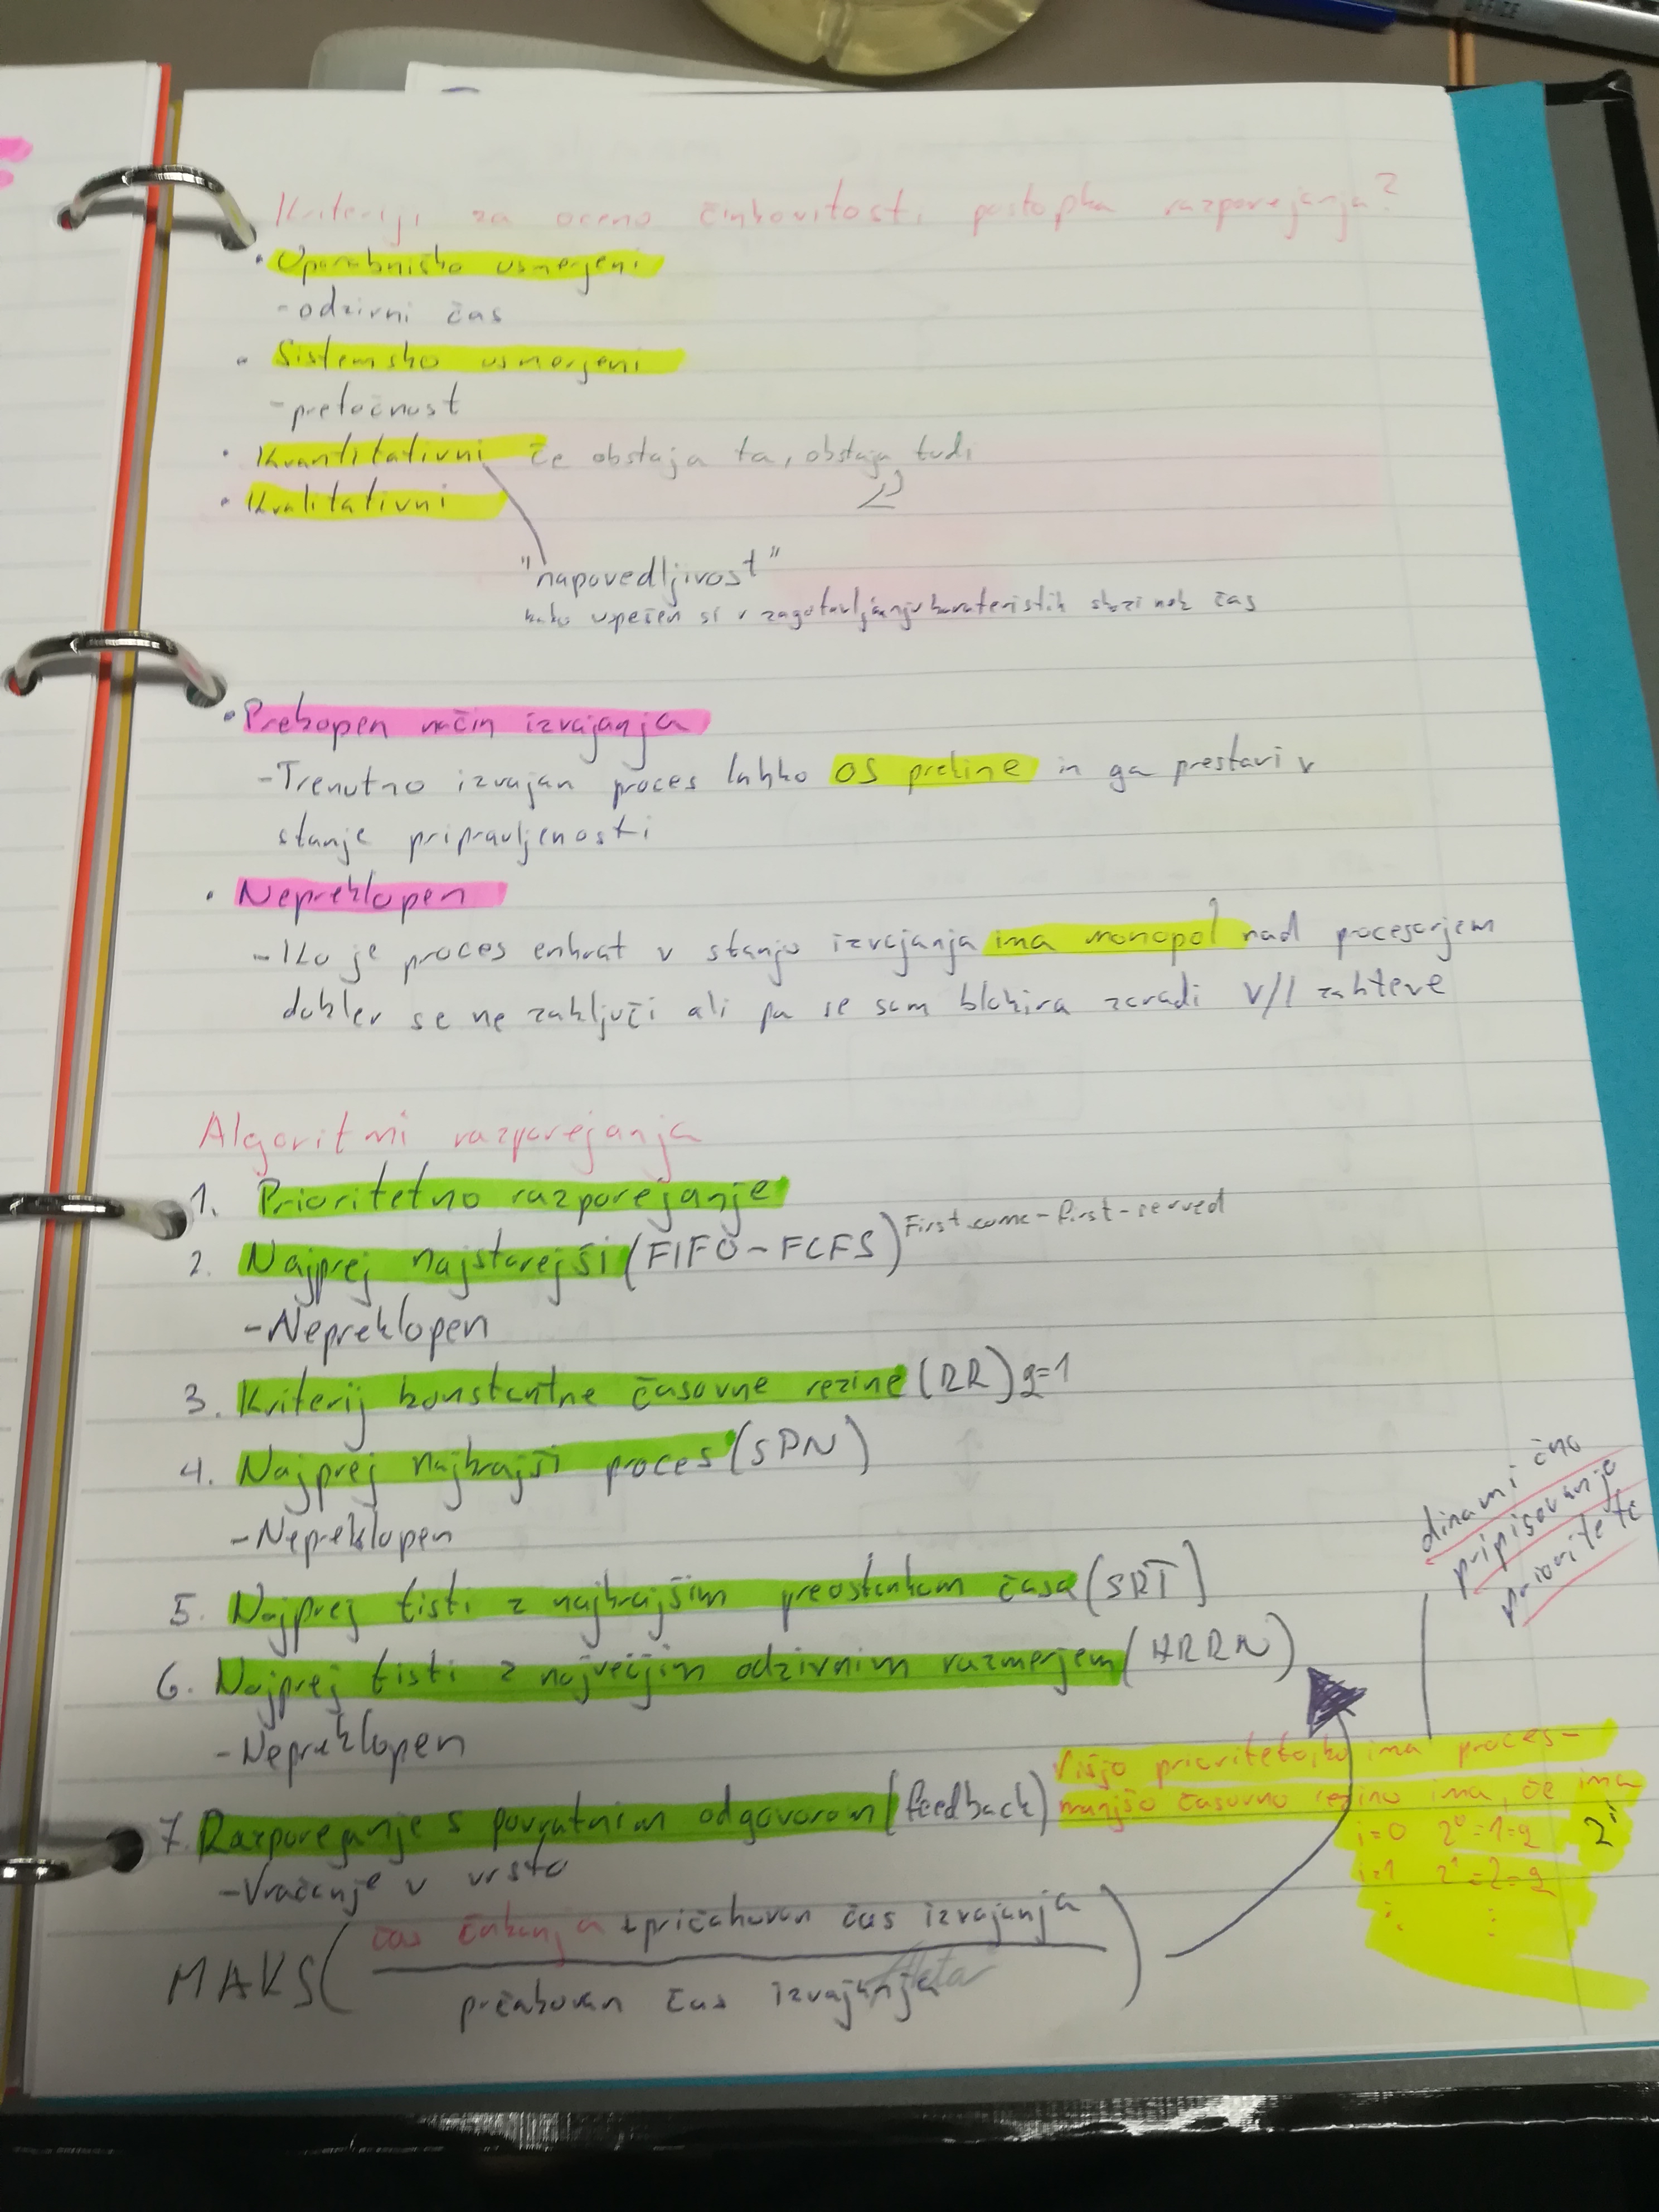 OFFICE
Kriteriji za oceno činkovitosti postopka razporejanja?
• Uporabniško usmerjeni
- odzivni čas
• Sistemsko usmerjeni
- pretočnost
• Kvantitativni če obstaja ta, obstaja tudi
• Kvalitativni
"napovedljivost"
kako uspešen si v zagotavljanju karateristik skozi nek čas
• Preklopen način izvajanja
- Trenutno izvajan proces lahko OS prekine in ga prestavi v
stanje pripravljenosti
• Nepreklopen
- Ko je proces enkrat v stanju izvajanja ima monopol nad procesorjem
dokler se ne zaključi ali pa se sam blokira zaradi V/I zahteve
Algoritmi razporejanja
1. Prioritetno razporejanje
2. Najprej najstarejši (FIFO - FCFS) First-come-first-served
- Nepreklopen
3. Kriterij konstantne časovne rezine (RR) q=1
4. Najprej najkrajši proces (SPN)
- Nepreklopen
5. Najprej tisti z najkrajšim preostankom časa (SRT)
6. Najprej tisti z največjim odzivnim razmerjem (HRRN)
- Nepreklopen
dinamično
pripisovanje
prioritete
Višjo prioriteto, ko ima proces -
7. Razporejanje s povratnim odgovorom (feedback) manjšo časovno rezino ima, če ima
i=0 2⁰=1=q 2ⁱ
- Vračanje v vrsto
i=1 2¹=2=q
: :
MAKS( čas čakanja + pričakovan čas izvajanja )
pričakovan čas izvajanja